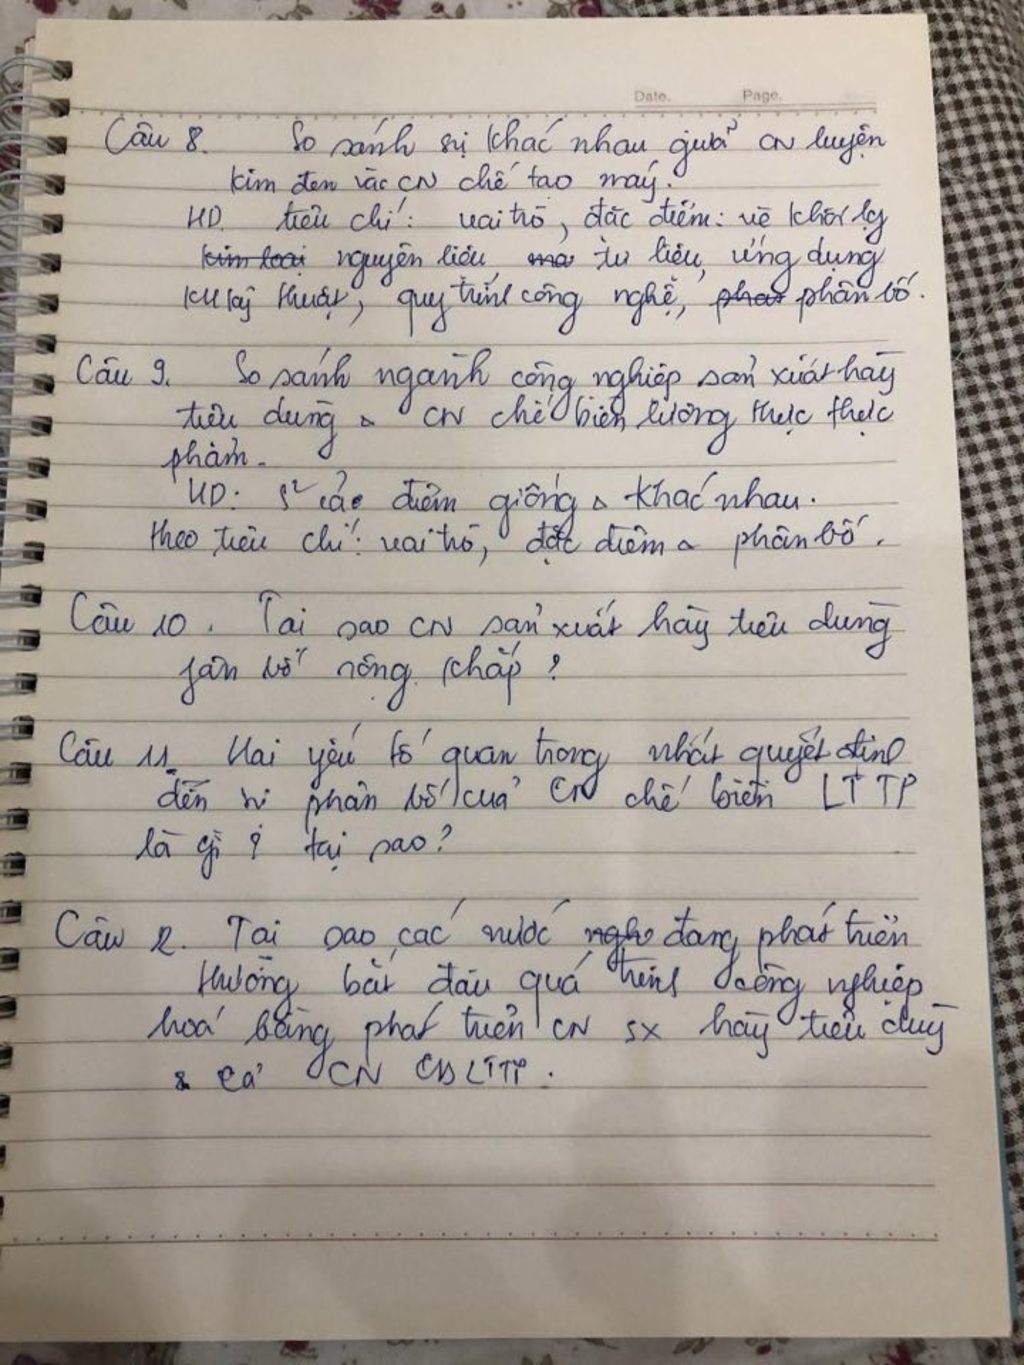 Date. Page.
Câu 8. So sánh sự khác nhau giữa CN luyện
kim đen và CN chế tạo máy.
HD. tiêu chí: vai trò, đặc điểm: về khối lg
kim loại nguyên liệu, tư liệu, ứng dụng
KH kỹ thuật, quy trình công nghệ, phân bố.
Câu 9. So sánh ngành công nghiệp sản xuất hàg
tiêu dùng & CN chế biến lương thực thực
phẩm.
HD: S² các điểm giống & khác nhau.
theo tiêu chí: vai trò, đặc điểm & phân bố.
Câu 10. Tại sao CN sản xuất hàg tiêu dùng
fân bố rộng khắp?
Câu 11. Hai yếu tố quan trọng nhất quyết định
đến sự phân bố của CN chế biến LTTP
là gì? tại sao?
Câu 12. Tại sao các nước đang phát triển
thường bắt đầu quá trình công nghiệp
hoá bằng phát triển CN SX hàg tiêu dùg
& cả CN CBLTTP.